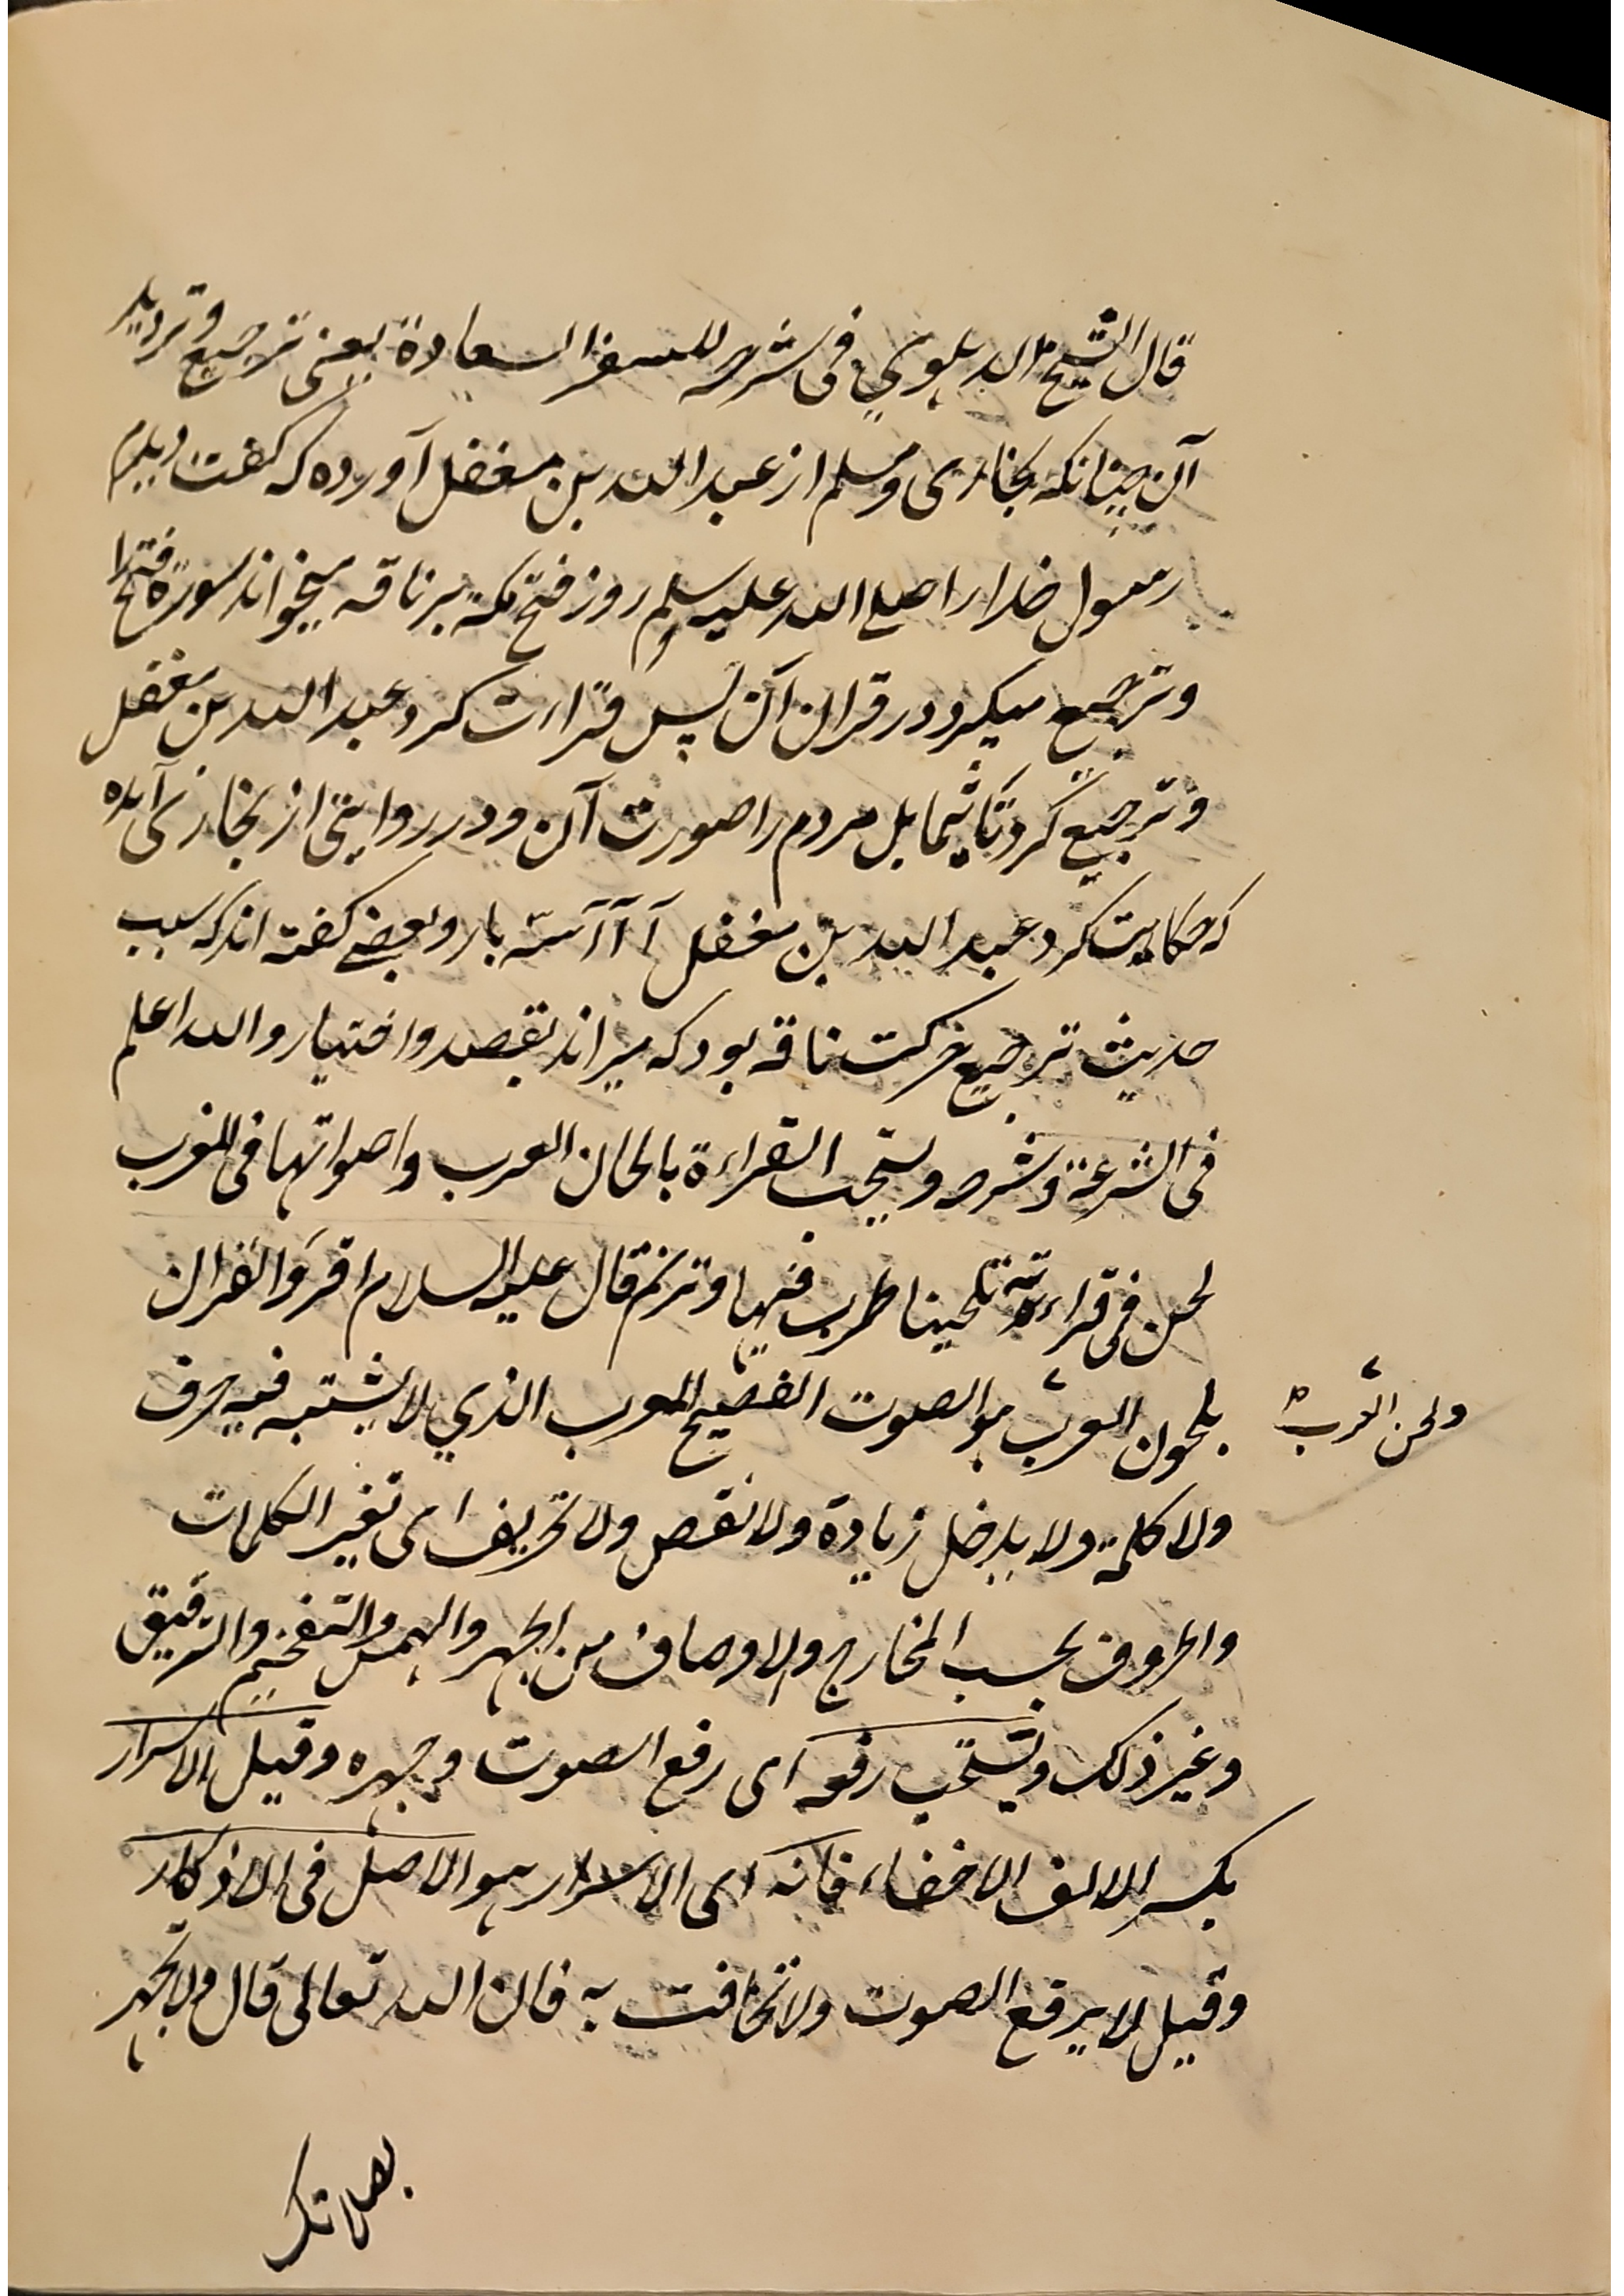 قال الشيخ الدهلوي فى شرحه للسفر السعادة يعنى ترجيع وترديد
آن چنانكه بخارى ومسلم از عبد الله بن مغفل آورده كه گفت ديدم
رسول خدا را صلى الله عليه وسلم روز فتح مكة بر ناقه ميخواند سورة فتح را
وترجيع ميكرد در قران آن پس قراءت كرد عبد الله بن مغفل
وترجيع كرد تا شما بل مردم را صورت آن ودر روايتى از بخارى آمده
كه حكايت كرد عبد الله بن مغفل آ آ آ سه بار وبعضى گفته اند كه سبب
حديث ترجيع حركت ناقه بود كه ميراند بقصد واختيار والله اعلم
فى الشرعة وشرحه ويستحب القراءة بالحان العرب واصواتها فى المغرب
لحن فى قراءته تلحينا طرب فيها وترنم قال عليه السلام اقرؤا القران
بلحون العرب هو الصوت الفصيح المعرب الذي لا يشتبه فيه حرف
ولحن العرب
ولا كلمة ولا يدخل زيادة ولا نقص ولا تحريف اى تغير الكلمات
والحروف بحسب المخارج والاوصاف من الجهر والهمس والتفخيم والترقيق
وغير ذلك ويستحب رفعه اى رفع الصوت وجهره وقيل الاسرار
بكسر الالف الاخفاء فانه اى الاسرار هو الاصل فى الاذكار
وقيل لا يرفع الصوت ولا تخافت به فان الله تعالى قال ولا تجهر
بصلاتك